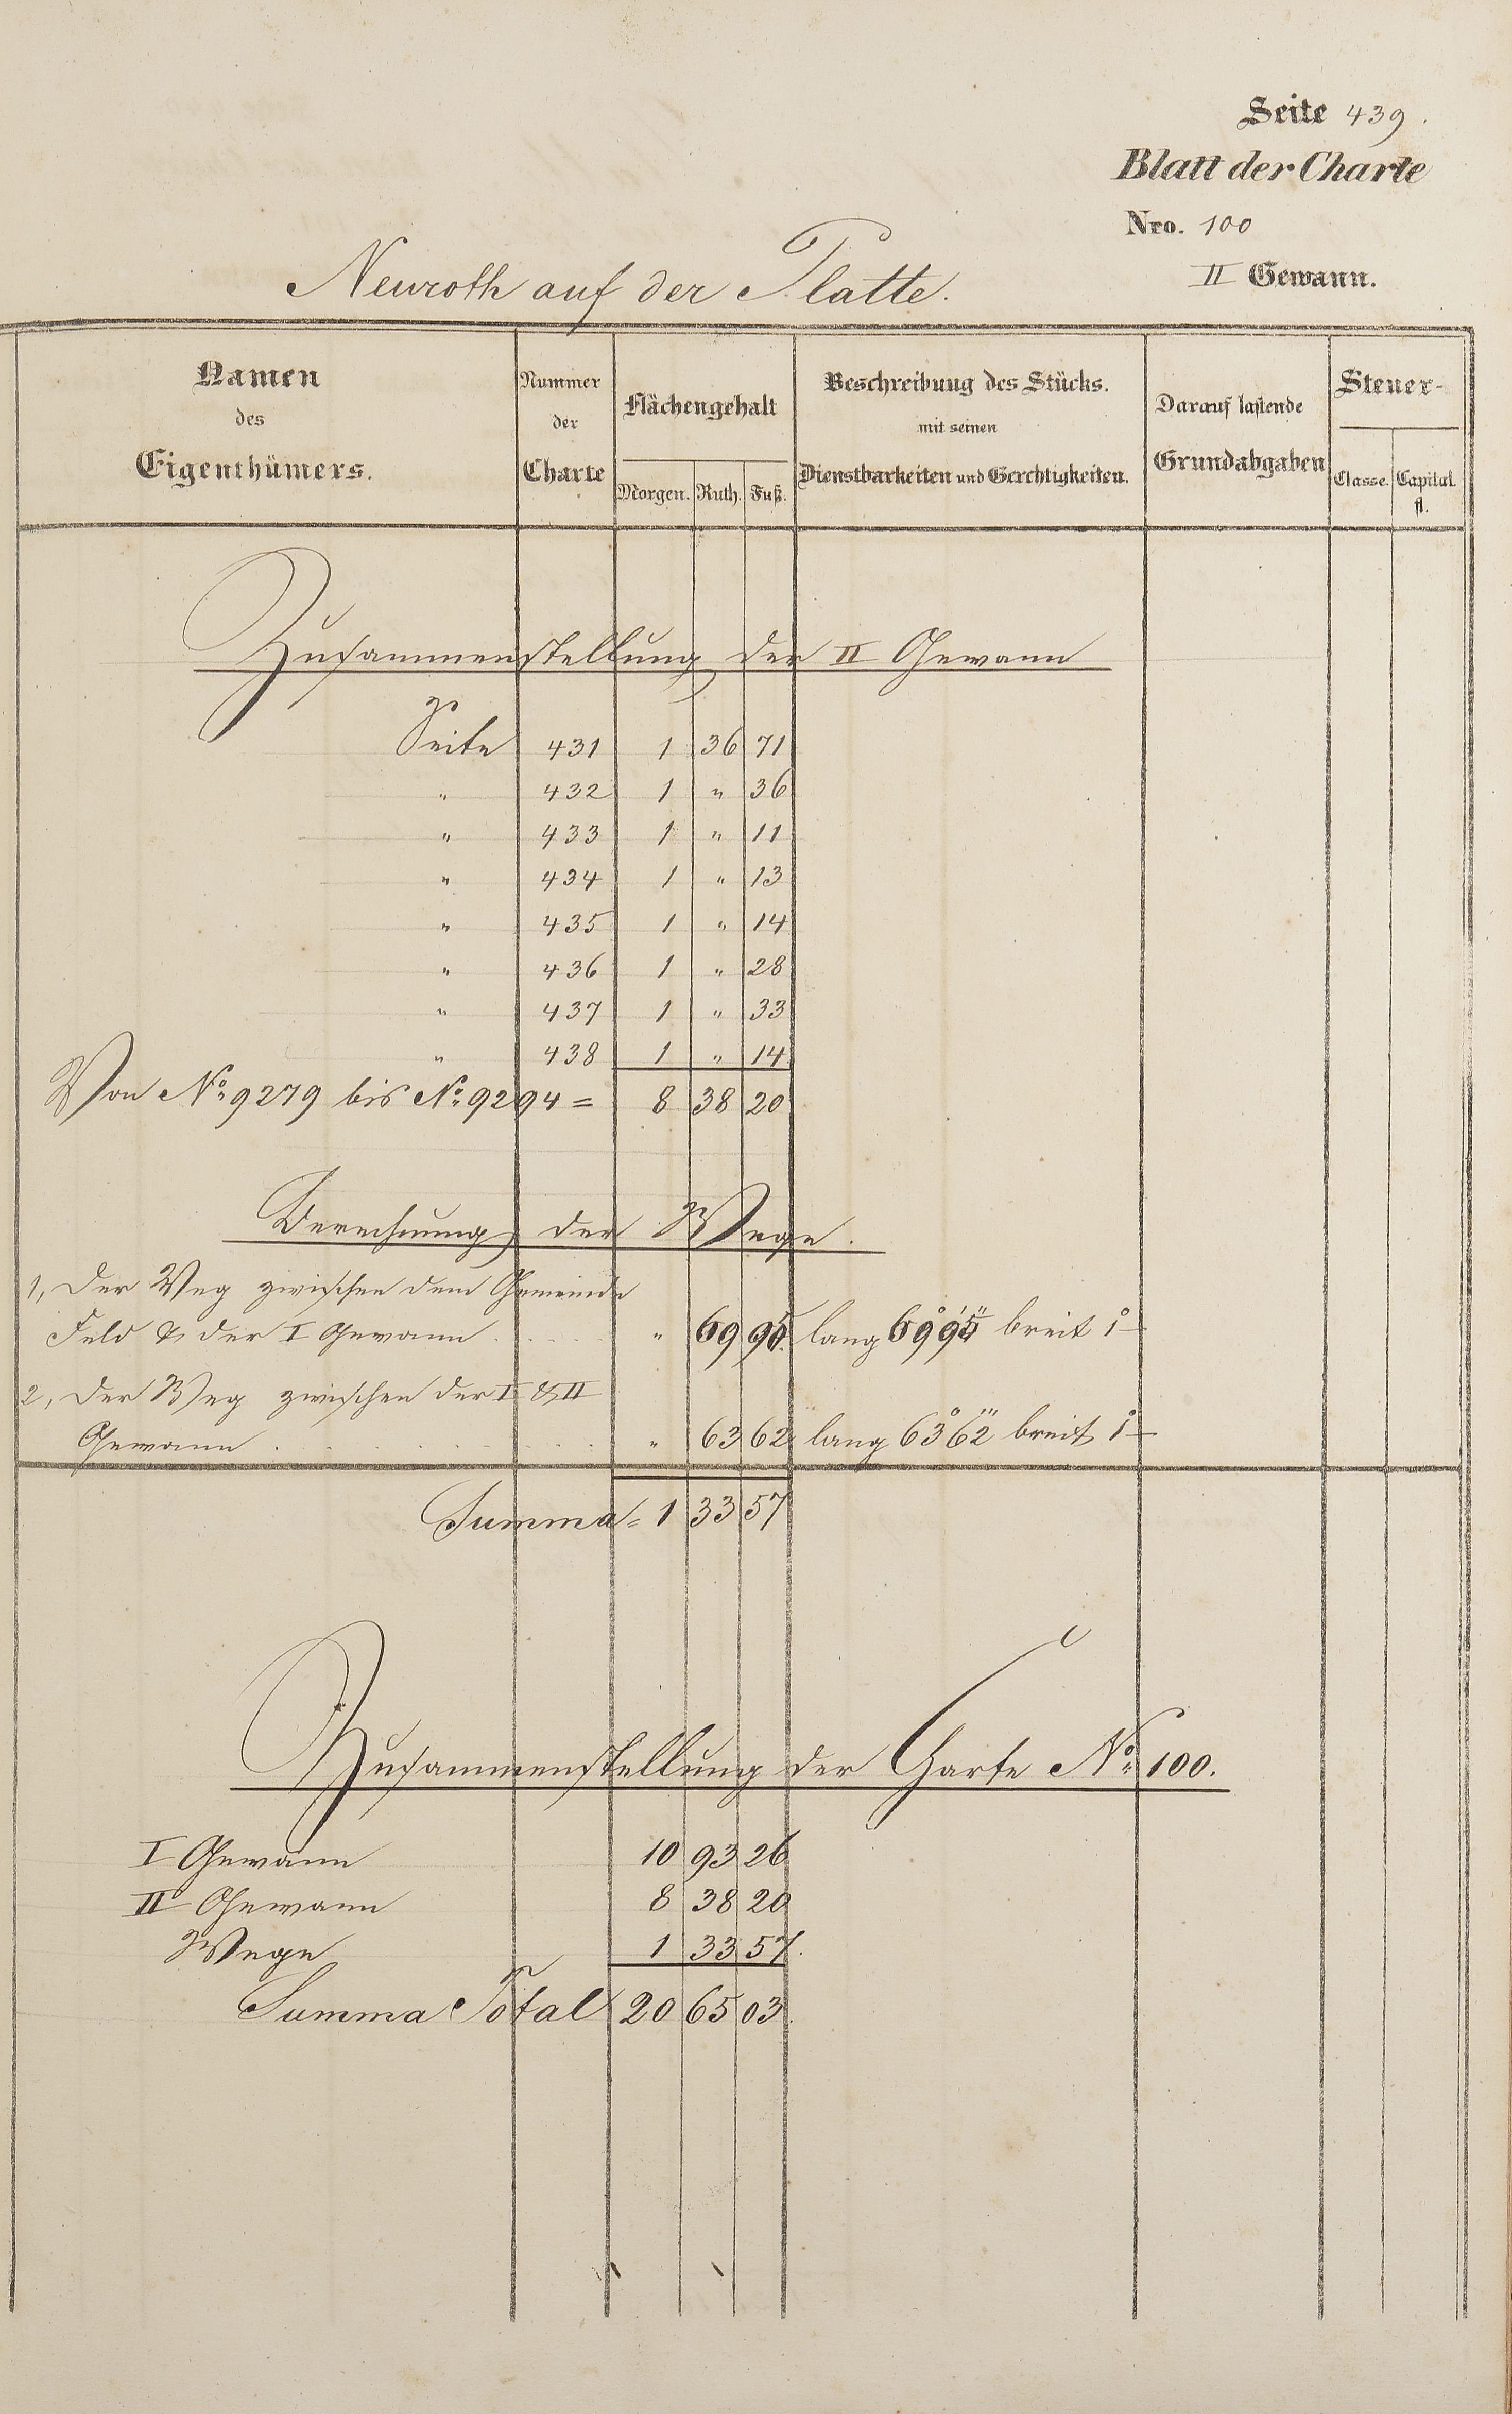 Seite 439.
Blatt der Charte
Nro. 100
II Gewann.
Neuroth auf der Platte.
Namen des Eigenthümers.
Nummer der Charte
Flächengehalt
Morgen. Ruth. Fuß.
Beschreibung des Stücks.
mit seinen
Dienstbarkeiten und Gerechtigkeiten.
Darauf lastende
Grundabgaben
Steuer-
Classe. Capital fl.
Zusammenstellung der II Gewann
Seite 431 1 36 71
" 432 1 " 36
" 433 1 " 11
" 434 1 " 13
" 435 1 " 14
" 436 1 " 28
" 437 1 " 33
" 438 1 " 14
Von No. 9279 bis No. 9294 = 8 38 20
Berechnung der Wege.
1, Der Weg zwischen dem Gemeinde
Feld & der I Gewann . . . . " 69 95. lang 69° 9' 5" breit 1° —
2, Der Weg zwischen der I & II
Gewann . . . . . . . " 63 62 lang 63° 62''' breit 1° —
Summa = 1 33 57
Zusammenstellung der Carte No. 100.
I Gewann 10 93 26
II Gewann 8 38 20
Wege 1 33 57.
Summa Total 20 65 03.